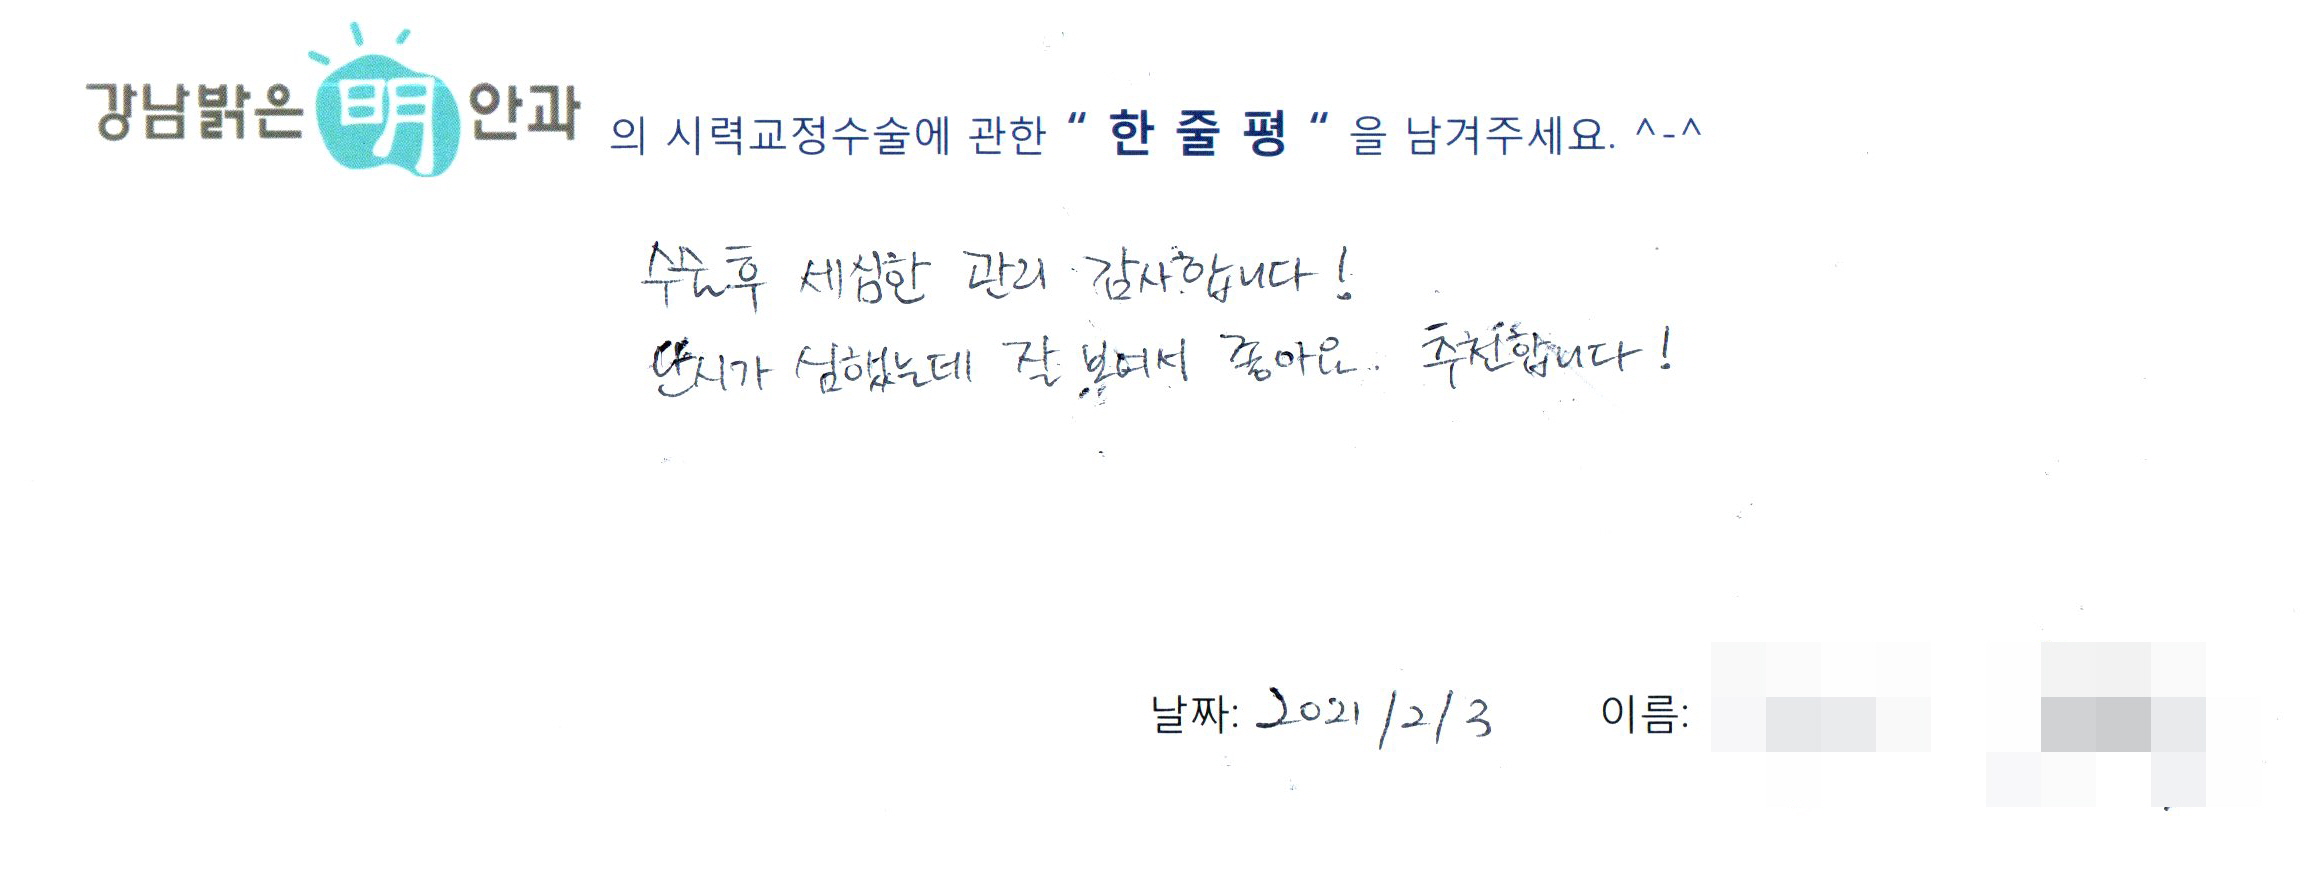 강남밝은 明 안과 의 시력교정수술에 관한 “ 한 줄 평 “ 을 남겨주세요. ^-^
수술후 세심한 관리 감사합니다!
난시가 심했는데 잘 보여서 좋아요. 추천합니다!
날짜: 2021/2/3 이름: